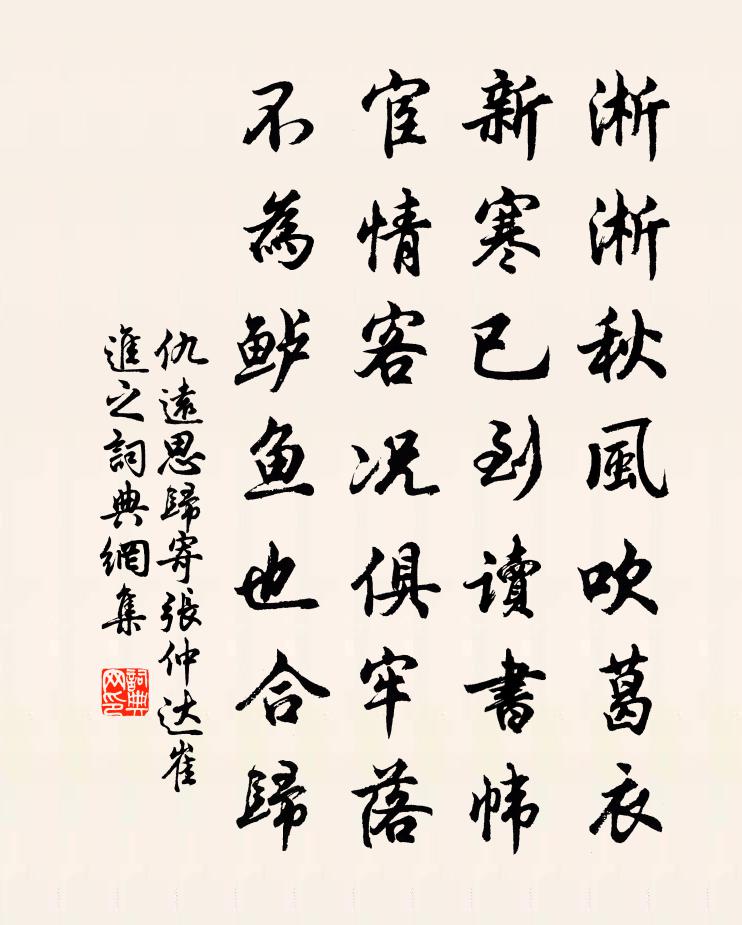 淅淅秋風吹葛衣
新寒已到讀書帏
宦情客况俱牢落
不為鲈魚也合歸
仇遠思歸寄張仲达崔
進之詞典網集
詞典
网印